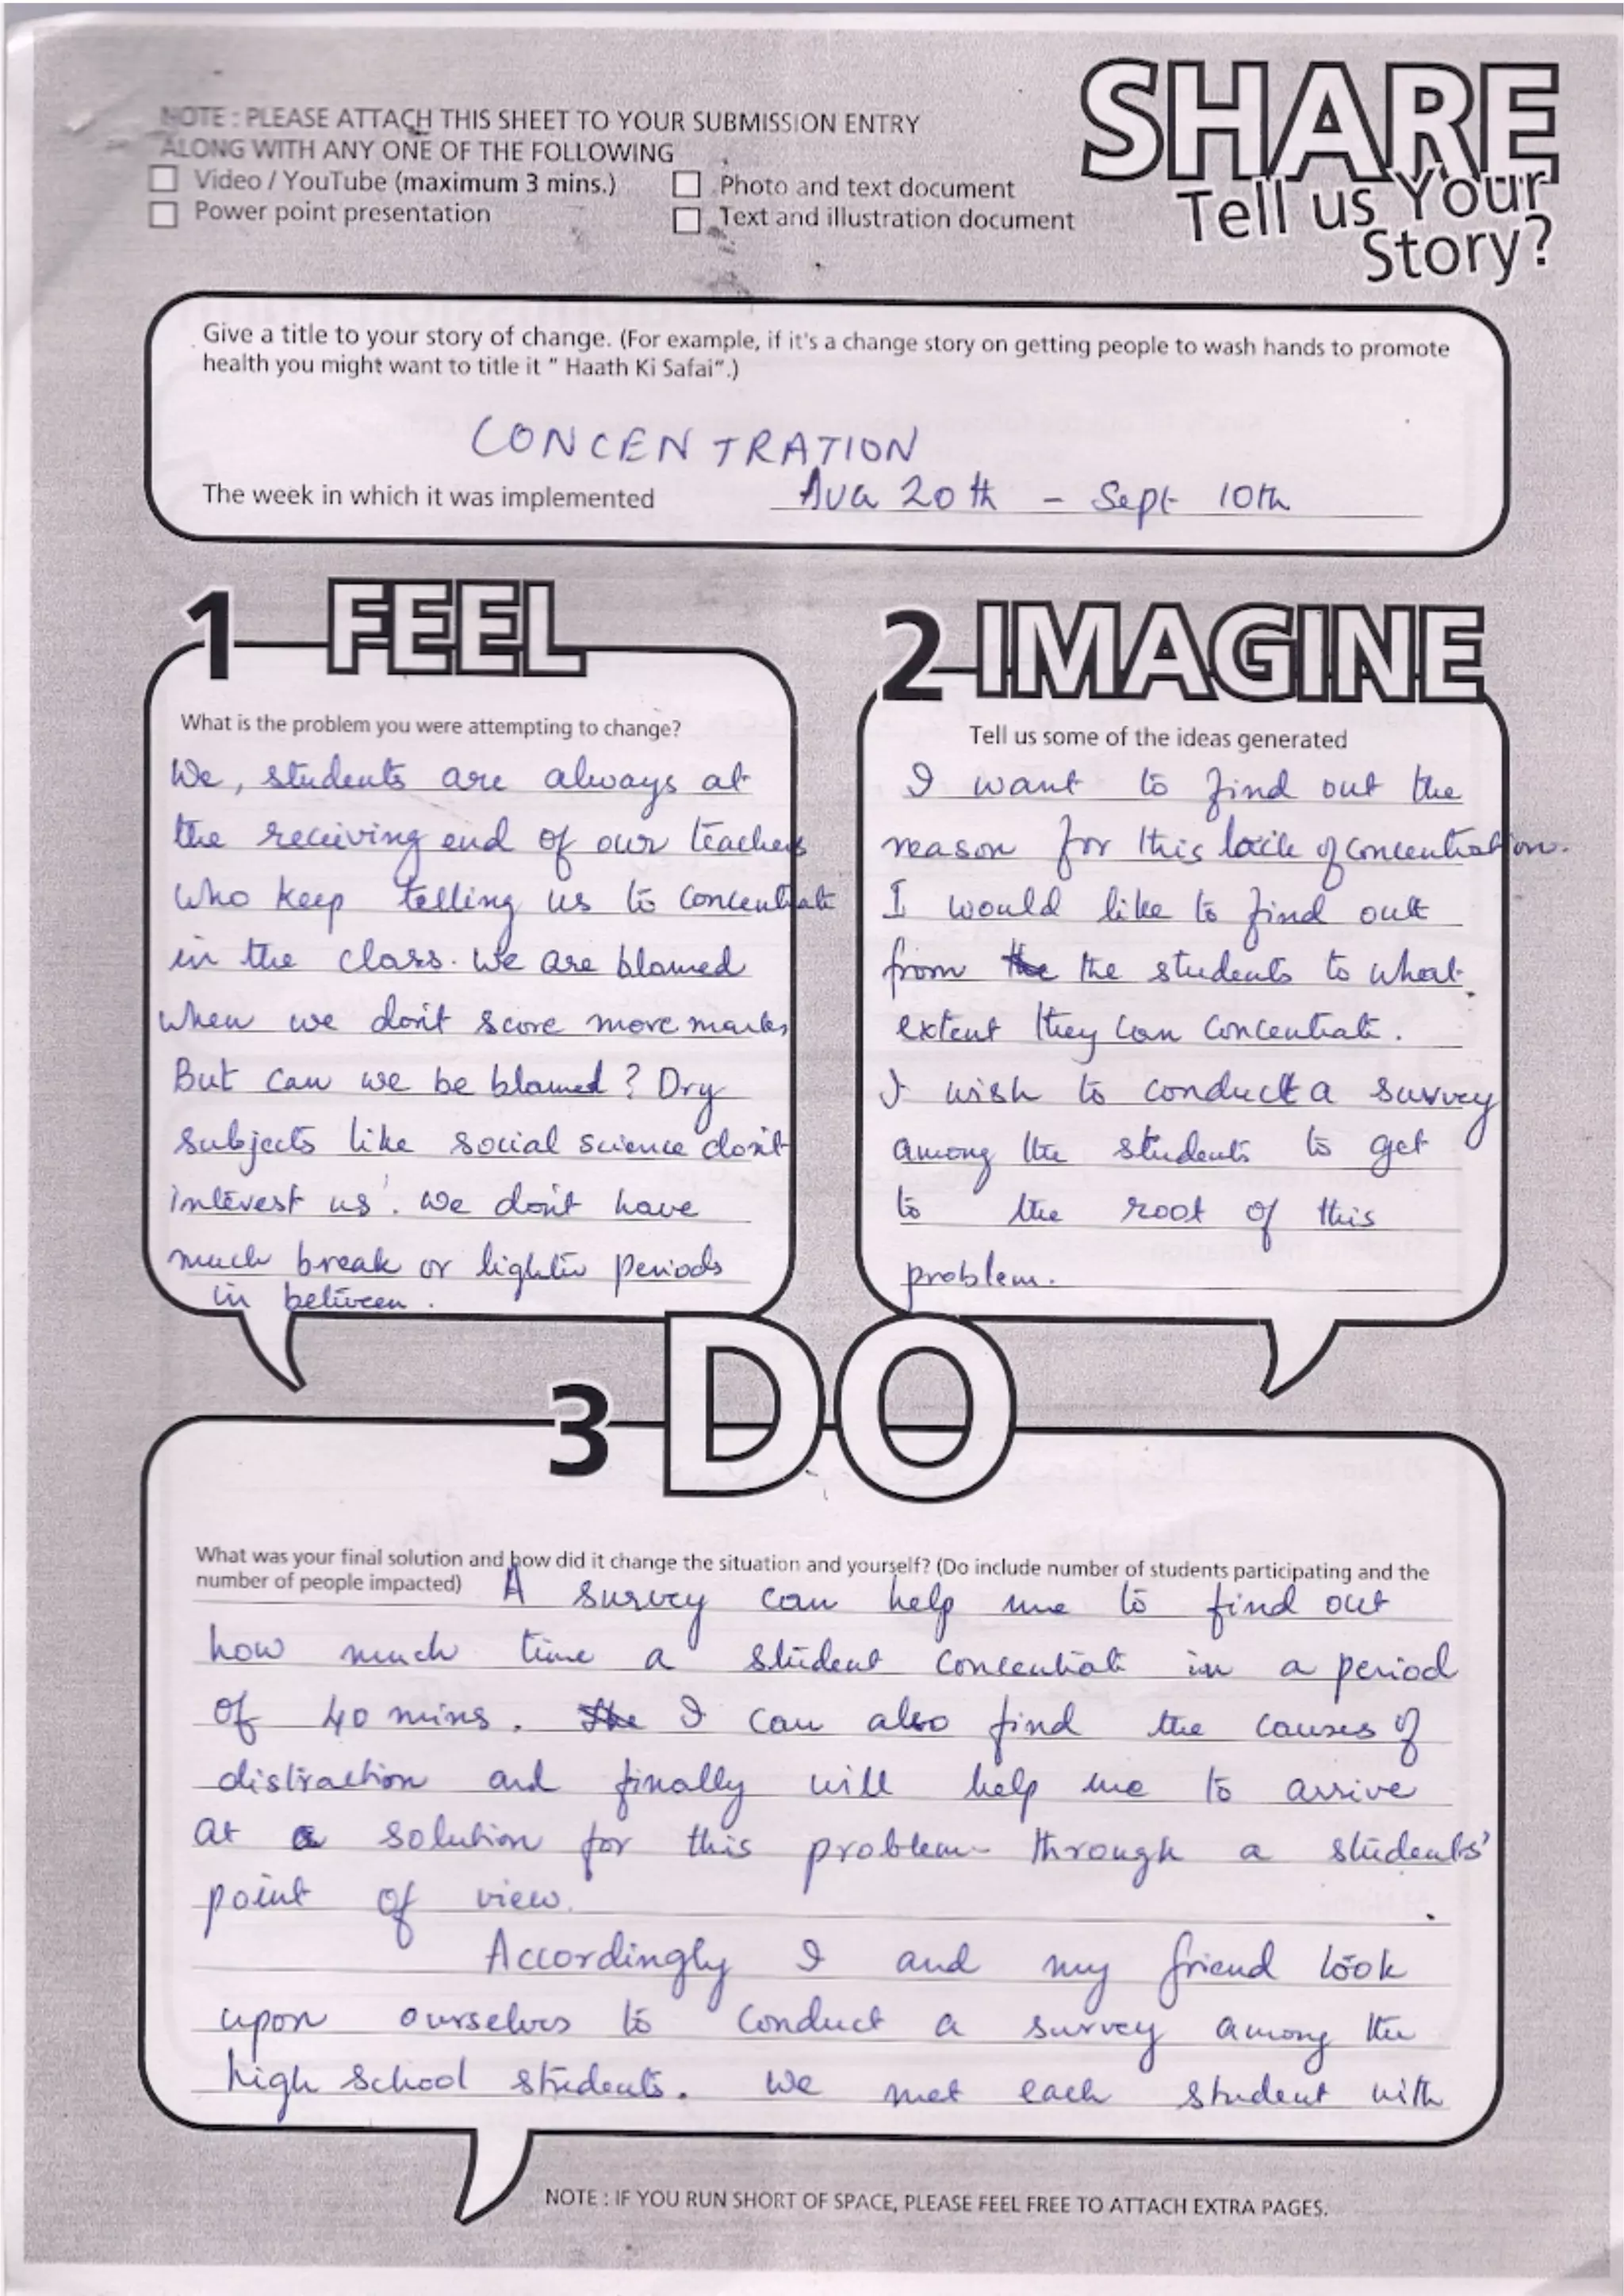 NOTE : PLEASE ATTACH THIS SHEET TO YOUR SUBMISSION ENTRY
ALONG WITH ANY ONE OF THE FOLLOWING
Video / YouTube (maximum 3 mins.)
Photo and text document
Power point presentation
Text and illustration document
SHARE
Tell us Your
Story?
Give a title to your story of change. (For example, if it's a change story on getting people to wash hands to promote
health you might want to title it " Haath Ki Safai".)
CONCENTRATION
The week in which it was implemented Aug 20th - Sept 10th
1 FEEL
What is the problem you were attempting to change?
We, students are always at
the receiving end of our teachers
who keep telling us to concentrate
in the class. We are blamed
when we don't score more marks
But can we be blamed? Dry
subjects like social science don't
interest us. We don't have
much break or lighter periods
in between.
2 IMAGINE
Tell us some of the ideas generated
I want to find out the
reason for this lack of concentration.
I would like to find out
from the the students to what
extent they can concentrate.
I wish to conduct a survey
among the students to get
to the root of this
problem.
3 DO
What was your final solution and how did it change the situation and yourself? (Do include number of students participating and the
number of people impacted) A survey can help me to find out
how much time a student concentrate in a period
of 40 mins. The I can also find the causes of
distraction and finally will help me to arrive
at a solution for this problem through a students'
point of view.
Accordingly I and my friend took
upon ourselves to conduct a survey among the
high school students. We met each student with
NOTE : IF YOU RUN SHORT OF SPACE, PLEASE FEEL FREE TO ATTACH EXTRA PAGES.